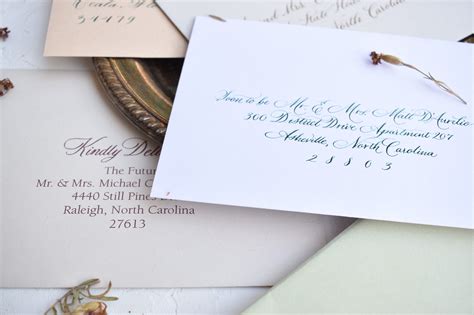 Ocala, F
34479
State
North Carolina
Soon to be Mr. & Mrs. Matt D'Aurelio
300 District Drive Apartment 207
Asheville, North Carolina
28803
Kindly Deli
The Futur
Mr. & Mrs. Michael C
4440 Still Pines D
Raleigh, North Carolina
27613